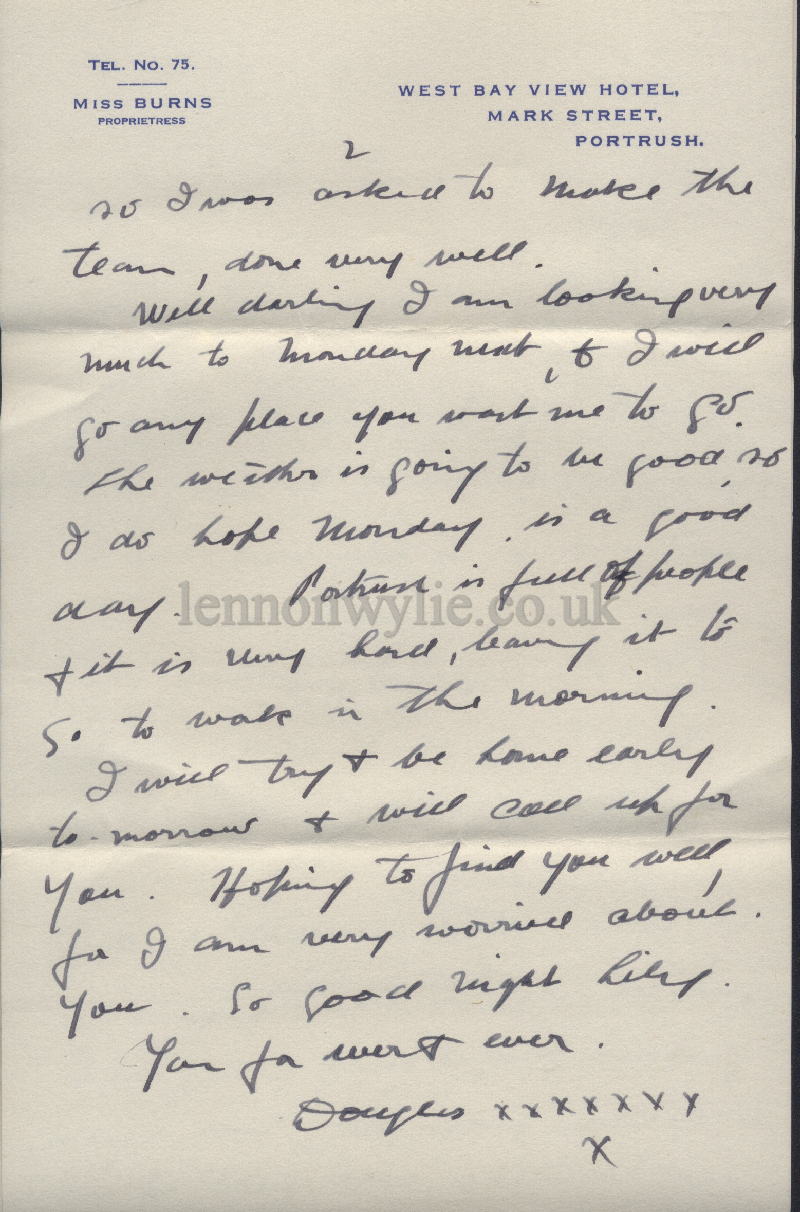 TEL. NO. 75.
MISS BURNS
PROPRIETRESS
WEST BAY VIEW HOTEL,
MARK STREET,
PORTRUSH.
2
so I was asked to make the
team, done very well.
Well darling I am looking very
much to Monday next, & I will
go any place you want me to go.
The weather is going to be good, so
I do hope Monday. is a good
day. Portrush is full of people
lennonwylie.co.uk
& it is very hard, leaving it to
go to work in the morning.
I will try & be home early
to-morrow & will call up for
you. Hoping to find you well,
for I am very worried about.
you. So good night Lily.
Your for ever & ever.
Douglas x x x x x x x
x